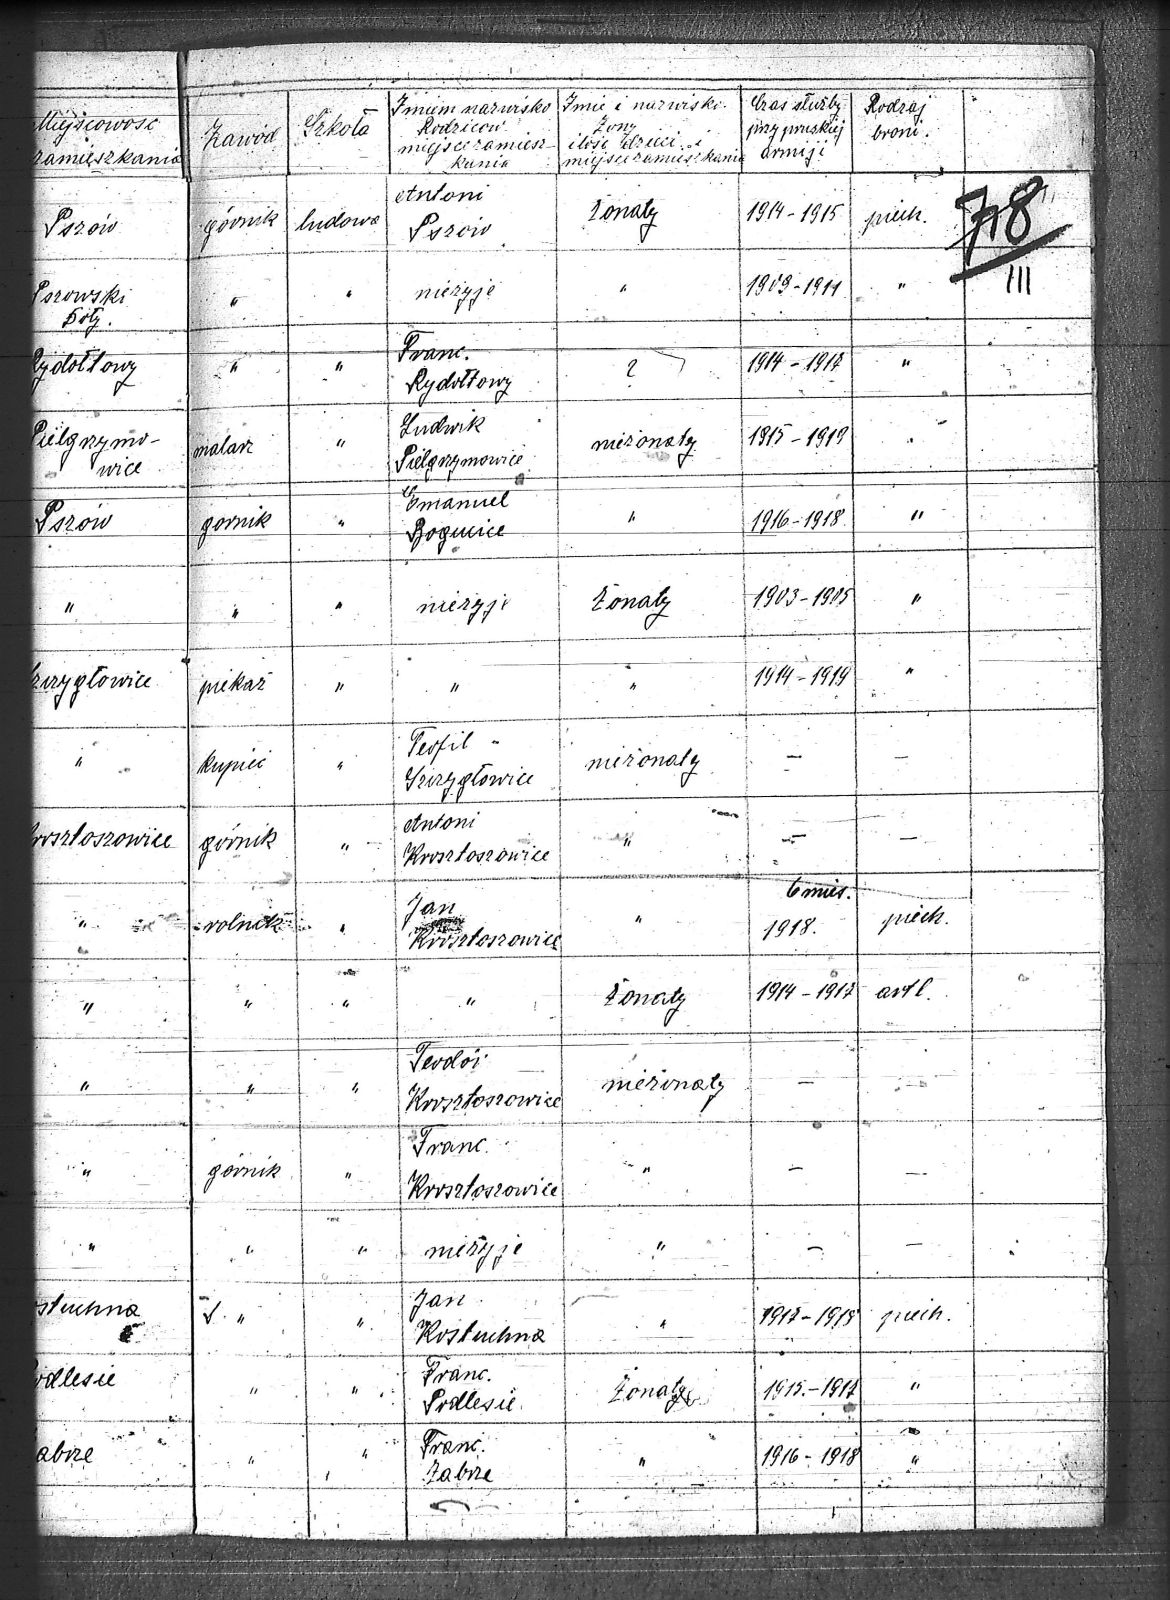 Miejscowość zamieszkania
Zawód
Szkoła
Imię i nazwisko
Rodziców
miejsce zamiesz-
kania
Imię i nazwisko
Żony
ilość dzieci i
miejsce zamieszkania
Czas służby
przy pruskiej
armiji
Rodzaj
broni.
78
III
Pszów górnik ludowa Antoni Pszów Żonaty 1914-1915 piech.
Pszowski Doły. " " nieżyje " 1909-1911 "
Rydołtowy " " Franc. Rydołtowy ? 1914-1917 "
Pielgrzymo-wice malarz " Ludwik Pielgrzymowice nieżonaty 1915-1919 "
Pszów gornik " Emanuel Bogucice " 1916-1918 "
" " " nieżyje Żonaty 1903-1905 "
Szczygłowice piekaż " " " 1914-1919 "
" kupiec " Teofil Szczygłowice nieżonaty — —
Krosztoszowice górnik " Antoni Krosztoszowice " — —
" rolnik " Jan Krosztoszowice " 6 mies. 1918. piech.
" " " " Żonaty 1914-1917 artl.
" " " Teodor Krosztoszowice nieżonaty — —
" górnik " Franc. Krosztoszowice " — —
" " " nieżyje " — —
Kostuchna " " Jan Kostuchna " 1917-1918 piech.
Podlesie " " Franc. Podlesie Żonaty 1915-1917 "
Zabrze " " Franc. Zabrze " 1916-1918 "